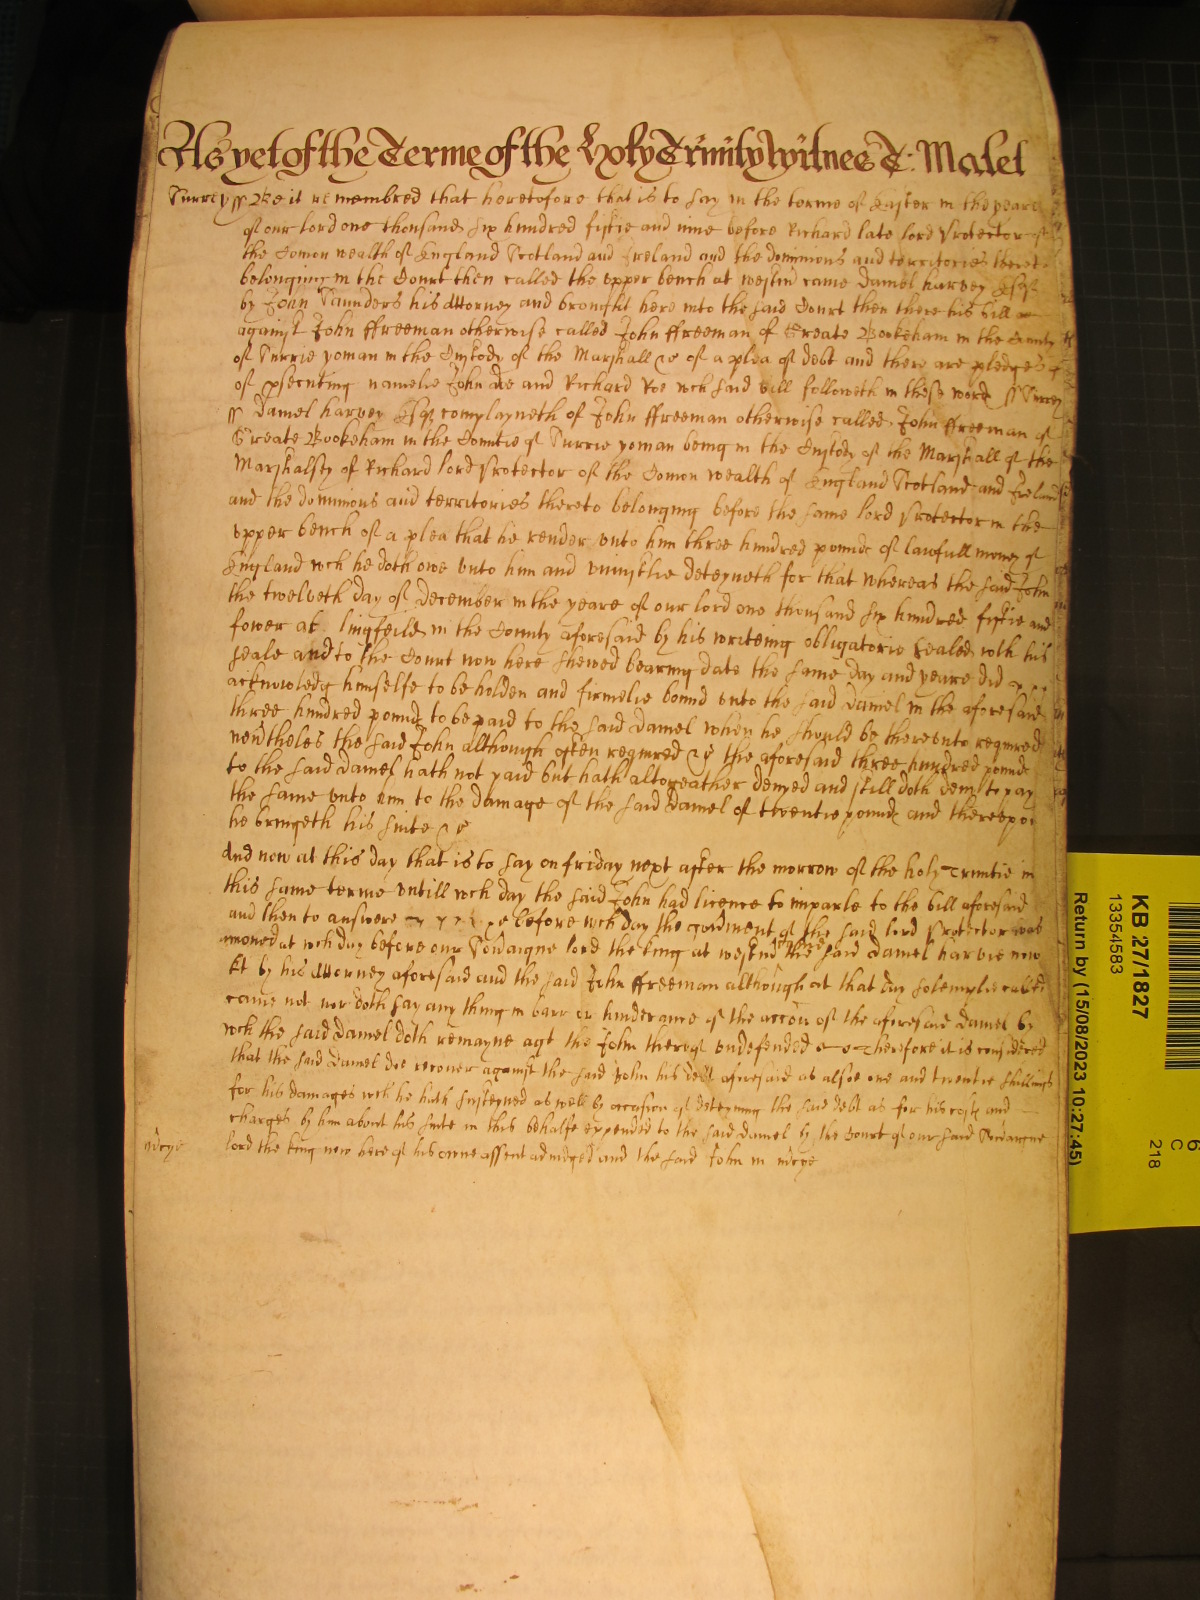 As yet of the Terme of the Holy Trinity Witnes T: Malet
Surrey ss Be it remembred that heretofore that is to say in the terme of Easter in the yeare
of our lord one thousand six hundred fiftie and nine before Richard late lord Protector of
the Comon wealth of England Scotland and Ireland and the dominions and territories theret
belonging in the Court then called the upper bench at westm came Daniel harvey Esqr
by John Saunders his Attorney and brought here into the said Court then there his bill
against John ffreeman otherwise called John ffreeman of Greate Bookeham in the County
of Surrie yoman in the Custody of the Marshall &c of a plea of debt and there are pledges
of psecuting namelie John doe and Richard Roe wch said bill followeth in these word ss Surrey
ss Daniel harvey Esqr complayneth of John ffreeman otherwise called John ffreeman of
Greate Bookeham in the Countie of Surrie yoman being in the Custody of the Marshall of the
Marshalsey of Richard lord Protector of the Comon wealth of England Scotland and Ireland
and the dominions and territories thereto belonging before the same lord Protector in the
upper bench of a plea that he render unto him three hundred pounds of lawfull money of
England wch he doth owe unto him and uniustlie deteyneth for that whereas the said John
the twelveth day of December in the yeare of our lord one thousand six hundred fiftie and
fower at lingfeild in the County aforesaid by his writeing obligatorie sealed with his
seale and to the Court now here shewed bearing date the same day and yeare did
acknowledg himselfe to be holden and firmelie bound unto the said Daniel in the aforesaid
three hundred pounds to be paid to the said Daniel when he should be thereunto required
nevtheles the said John although often required &c the aforesaid three hundred pounds
to the said Daniel hath not paid but hath altogeather denyed and still doth deny to pay
the same unto him to the damage of the said Daniel of twentie pounds and thereupon
he bringeth his suite &c
And now at this day that is to say on friday next after the morrow of the holy Trinitie in
this same terme untill wch day the said John had licence to imparle to the bill aforesaid
and then to answere &c before wch day the govment of the said lord Protector was
amoved at wch day before our Soveraigne lord the king at westm the said Daniel harvie
by his Attorney aforesaid and the said John ffreeman although at that day solemplie called
came not nor doth say any thing in barr or hinderance of the accon of the aforesaid Daniel by
wch the said Daniel doth remayne agt the John thereof undefended Therefore it is considered
that the said Daniel doe recover against the said John his debt aforesaid as alsoe one and twentie shillings
for his damages wch he hath susteyned as well by occasion of deteyning the said debt as for his costs and
charges by him about his suite in this behalfe expended to the said Daniel by the Court of our said Soveraigne
lord the king now here of his owne assent adiudged and the said John in mcye
mcye
KB 27/1827
13354583
Return by (15/08/2023 10:27:45)
218
C
6